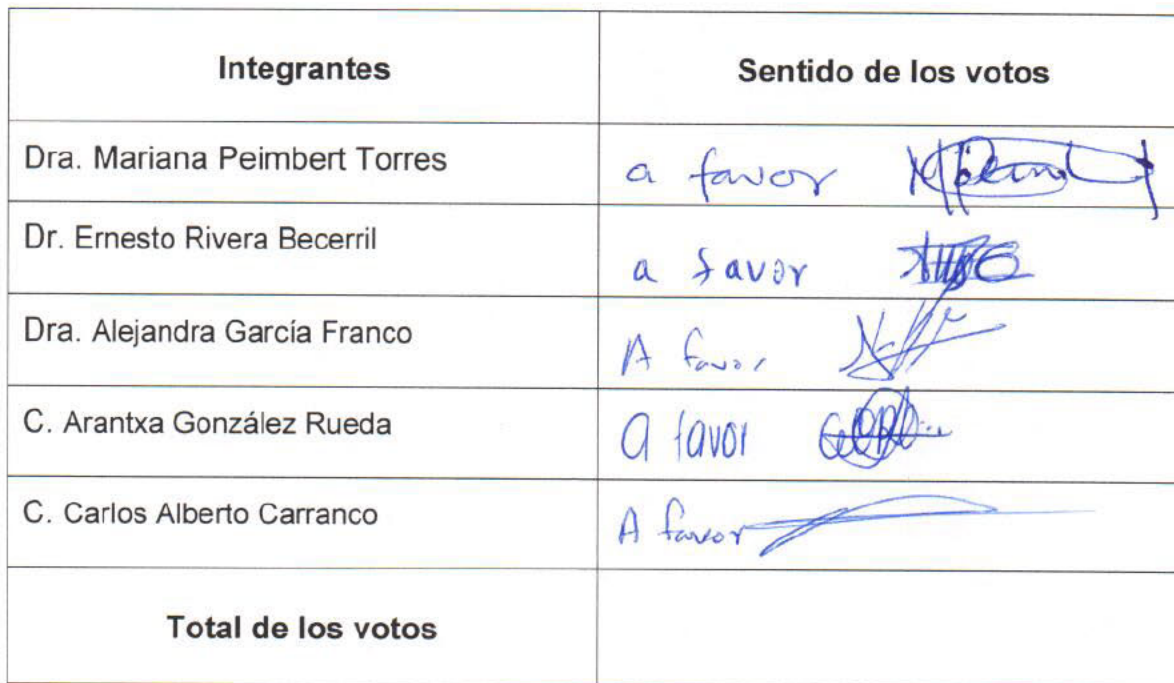 Integrantes Sentido de los votos
Dra. Mariana Peimbert Torres a favor
Dr. Ernesto Rivera Becerril a favor
Dra. Alejandra García Franco A favor
C. Arantxa González Rueda a favor
C. Carlos Alberto Carranco A favor
Total de los votos